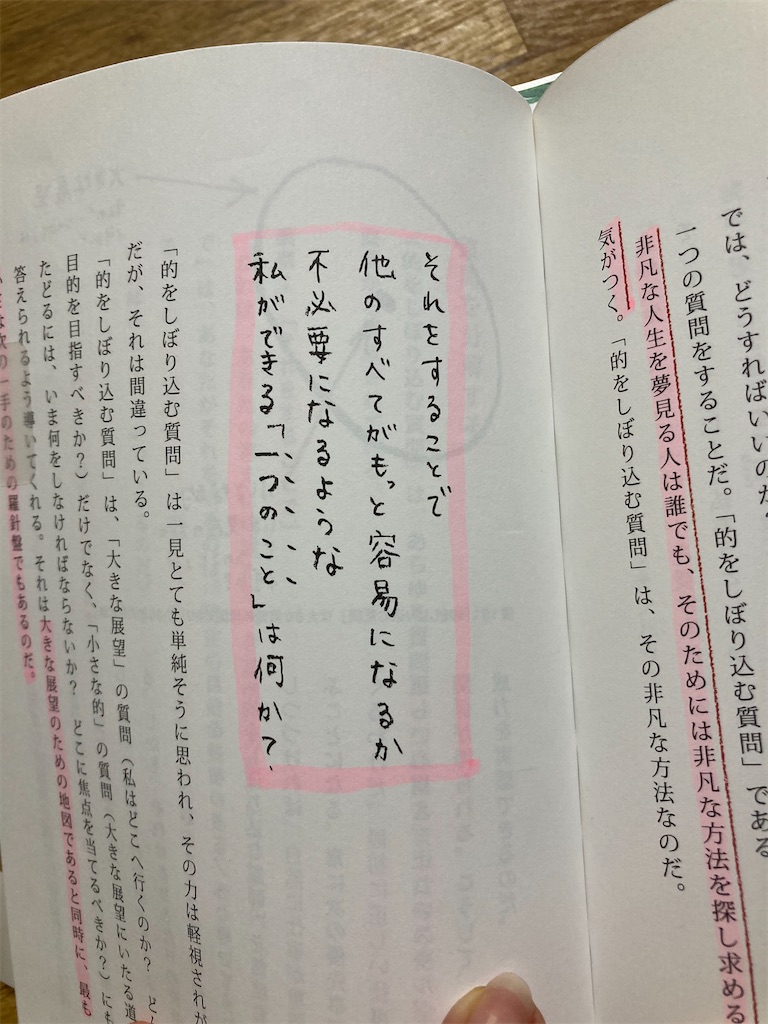 では、どうすればいいのか?
一つの質問をすることだ。「的をしぼり込む質問」である
非凡な人生を夢見る人は誰でも、そのためには非凡な方法を探し求める
気がつく。「的をしぼり込む質問」は、その非凡な方法なのだ。
それをすることで
他のすべてがもっと容易になるか
不必要になるような
私ができる「一つのこと」は何か?
「的をしぼり込む質問」は一見とても単純そうに思われ、その力は軽視されが
だが、それは間違っている。
「的をしぼり込む質問」は、「大きな展望」の質問（私はどこへ行くのか？　ど
目的を目指すべきか？）だけでなく、「小さな的」の質問（大きな展望にいたる道
たどるには、いま何をしなければならないか？　どこに焦点を当てるべきか？）にも
答えられるよう導いてくれる。それは大きな展望のための地図であると同時に、最も
な次の一手のための羅針盤でもあるのだ。